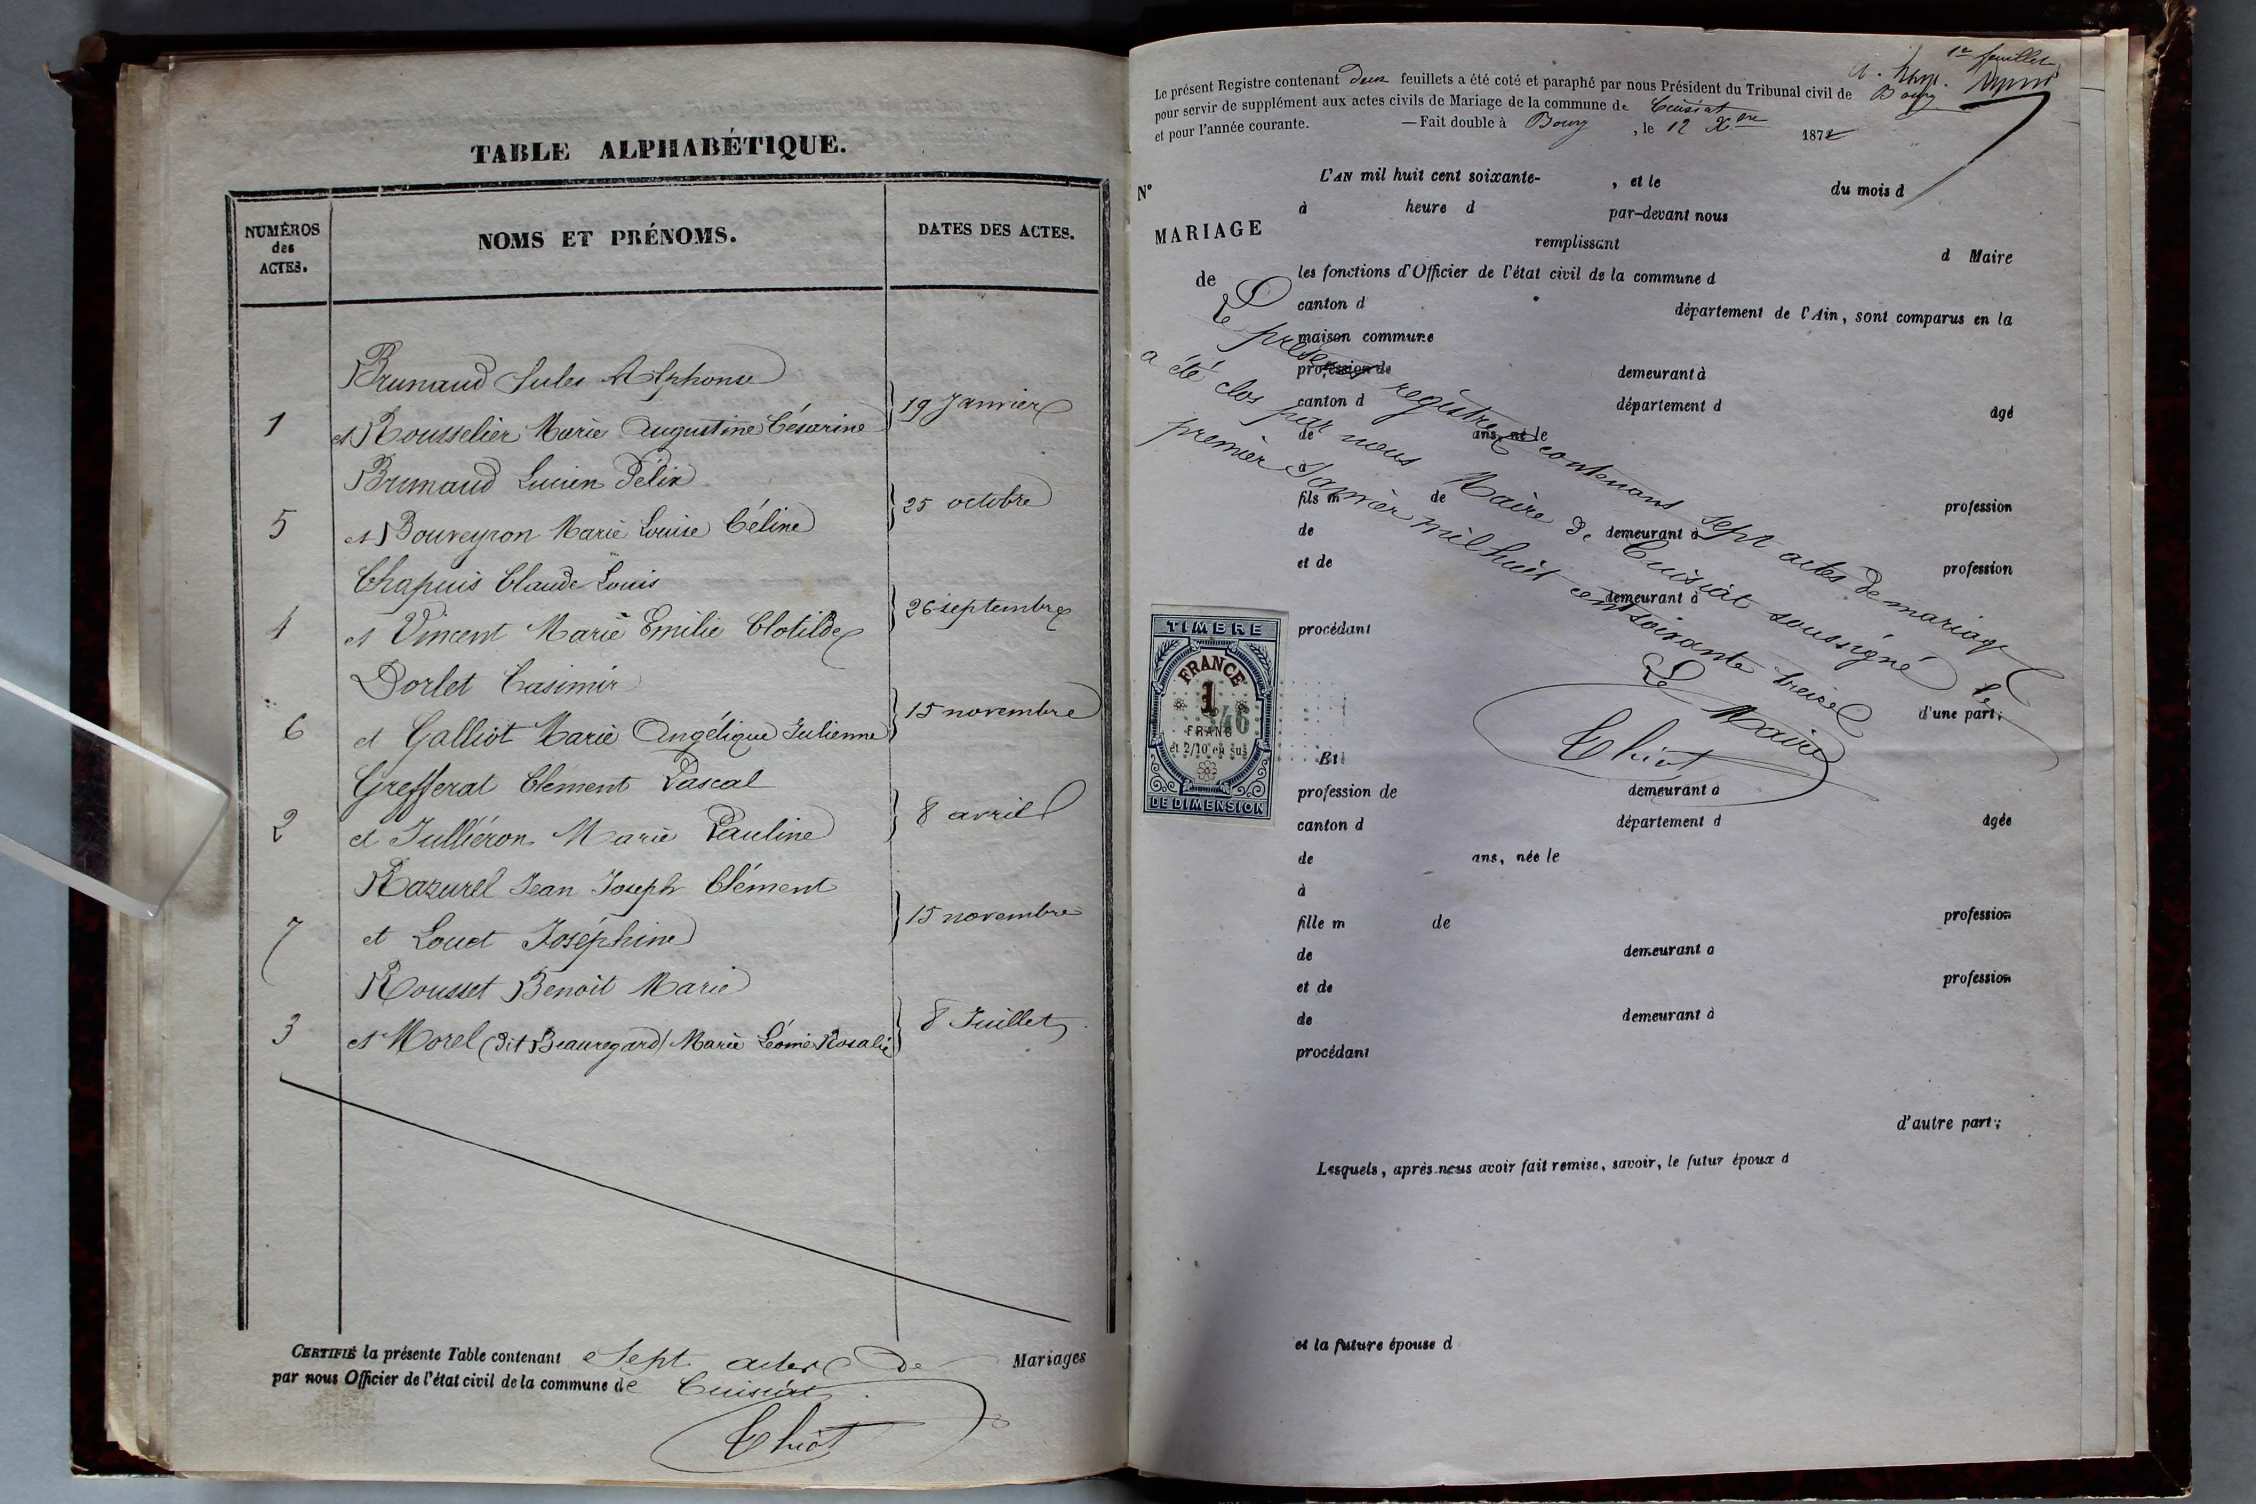 TABLE ALPHABÉTIQUE.
NUMÉROS des ACTES.
NOMS ET PRÉNOMS.
DATES DES ACTES.
Brunaud Jules Alphonse
1 et Rousselier Marie Augustine Césarine 19 Janvier
Brunaud Lucien Félix
5 et Bouveyron Marie Louise Céline 25 octobre
Chapuis Claude Louis
4 et Vincent Marie Emilie Clotilde 26 septembre
Dorlet Casimir
6 et Galliot Marie Angélique Julienne 15 novembre
Grefferat Clément Pascal
2 et Julliéron Marie Pauline 8 avril
Razurel Jean Joseph Clément
7 et Louet Joséphine 15 novembre
Rousset Benoit Marie
3 et Morel (dit Beauregard) Marie Léonie Rosalie 8 Juillet
CERTIFIÉ la présente Table contenant Sept actes de Mariages
par nous Officier de l'état civil de la commune de Cuisiat
Thiot
1er feuillet
Le présent Registre contenant Deux feuillets a été coté et paraphé par nous Président du Tribunal civil de Bourg
pour servir de supplément aux actes civils de Mariage de la commune de Cuisiat
et pour l'année courante. — Fait double à Bourg, le 12 Xbre 1872
N°
MARIAGE
de
L'AN mil huit cent soixante- , et le du mois d
à heure d par-devant nous
remplissant d Maire
les fonctions d'Officier de l'état civil de la commune d
canton d département de l'Ain, sont comparus en la
maison commune
profession de demeurant à
canton d département d âgé
de ans, né le
à
fils m de profession
de demeurant à
et de profession
demeurant à
procédant
d'une part;
Le présent registre contenant sept actes de mariage
a été clos par nous Maire de Cuisiat soussigné le
premier Janvier mil huit cent soixante treize
Le Maire
Thiot
TIMBRE
FRANCE
1
346
FRANC
et 2/10 en sus
DE DIMENSION
Et
profession de demeurant à
canton d département d âgée
de ans, née le
à
fille m de profession
de demeurant à
et de profession
de demeurant à
procédant
d'autre part;
Lesquels, après nous avoir fait remise, savoir, le futur époux d
et la future épouse d